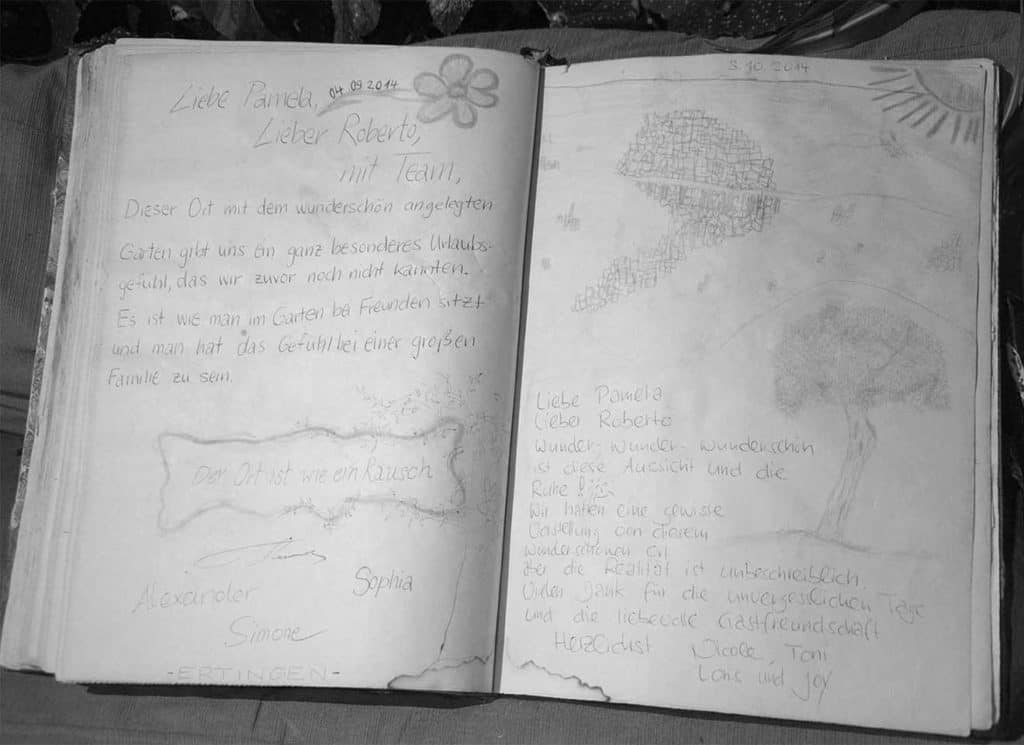 Liebe Pamela, 04.09.2014
Lieber Roberto,
mit Team,
Dieser Ort mit dem wunderschön angelegten
Garten gibt uns ein ganz besonderes Urlaubs-
gefühl, das wir zuvor noch nicht kannten.
Es ist wie man im Garten bei Freunden sitzt
und man hat das Gefühl bei einer großen
Familie zu sein.
Der Ort ist wie ein Rausch
Alexander
Sophia
Simone
-ERTINGEN-
3.10.2014
Liebe Pamela
Lieber Roberto
Wunder- wunder- wunderschön
ist diese Aussicht und die
Ruhe!
Wir hatten eine gewisse
Vorstellung von diesem
wunderschönen Ort
aber die Realität ist unbeschreiblich.
Vielen Dank für die unvergesslichen Tage
und die liebevolle Gastfreundschaft
Herzlichst Nicole, Toni
und Joy